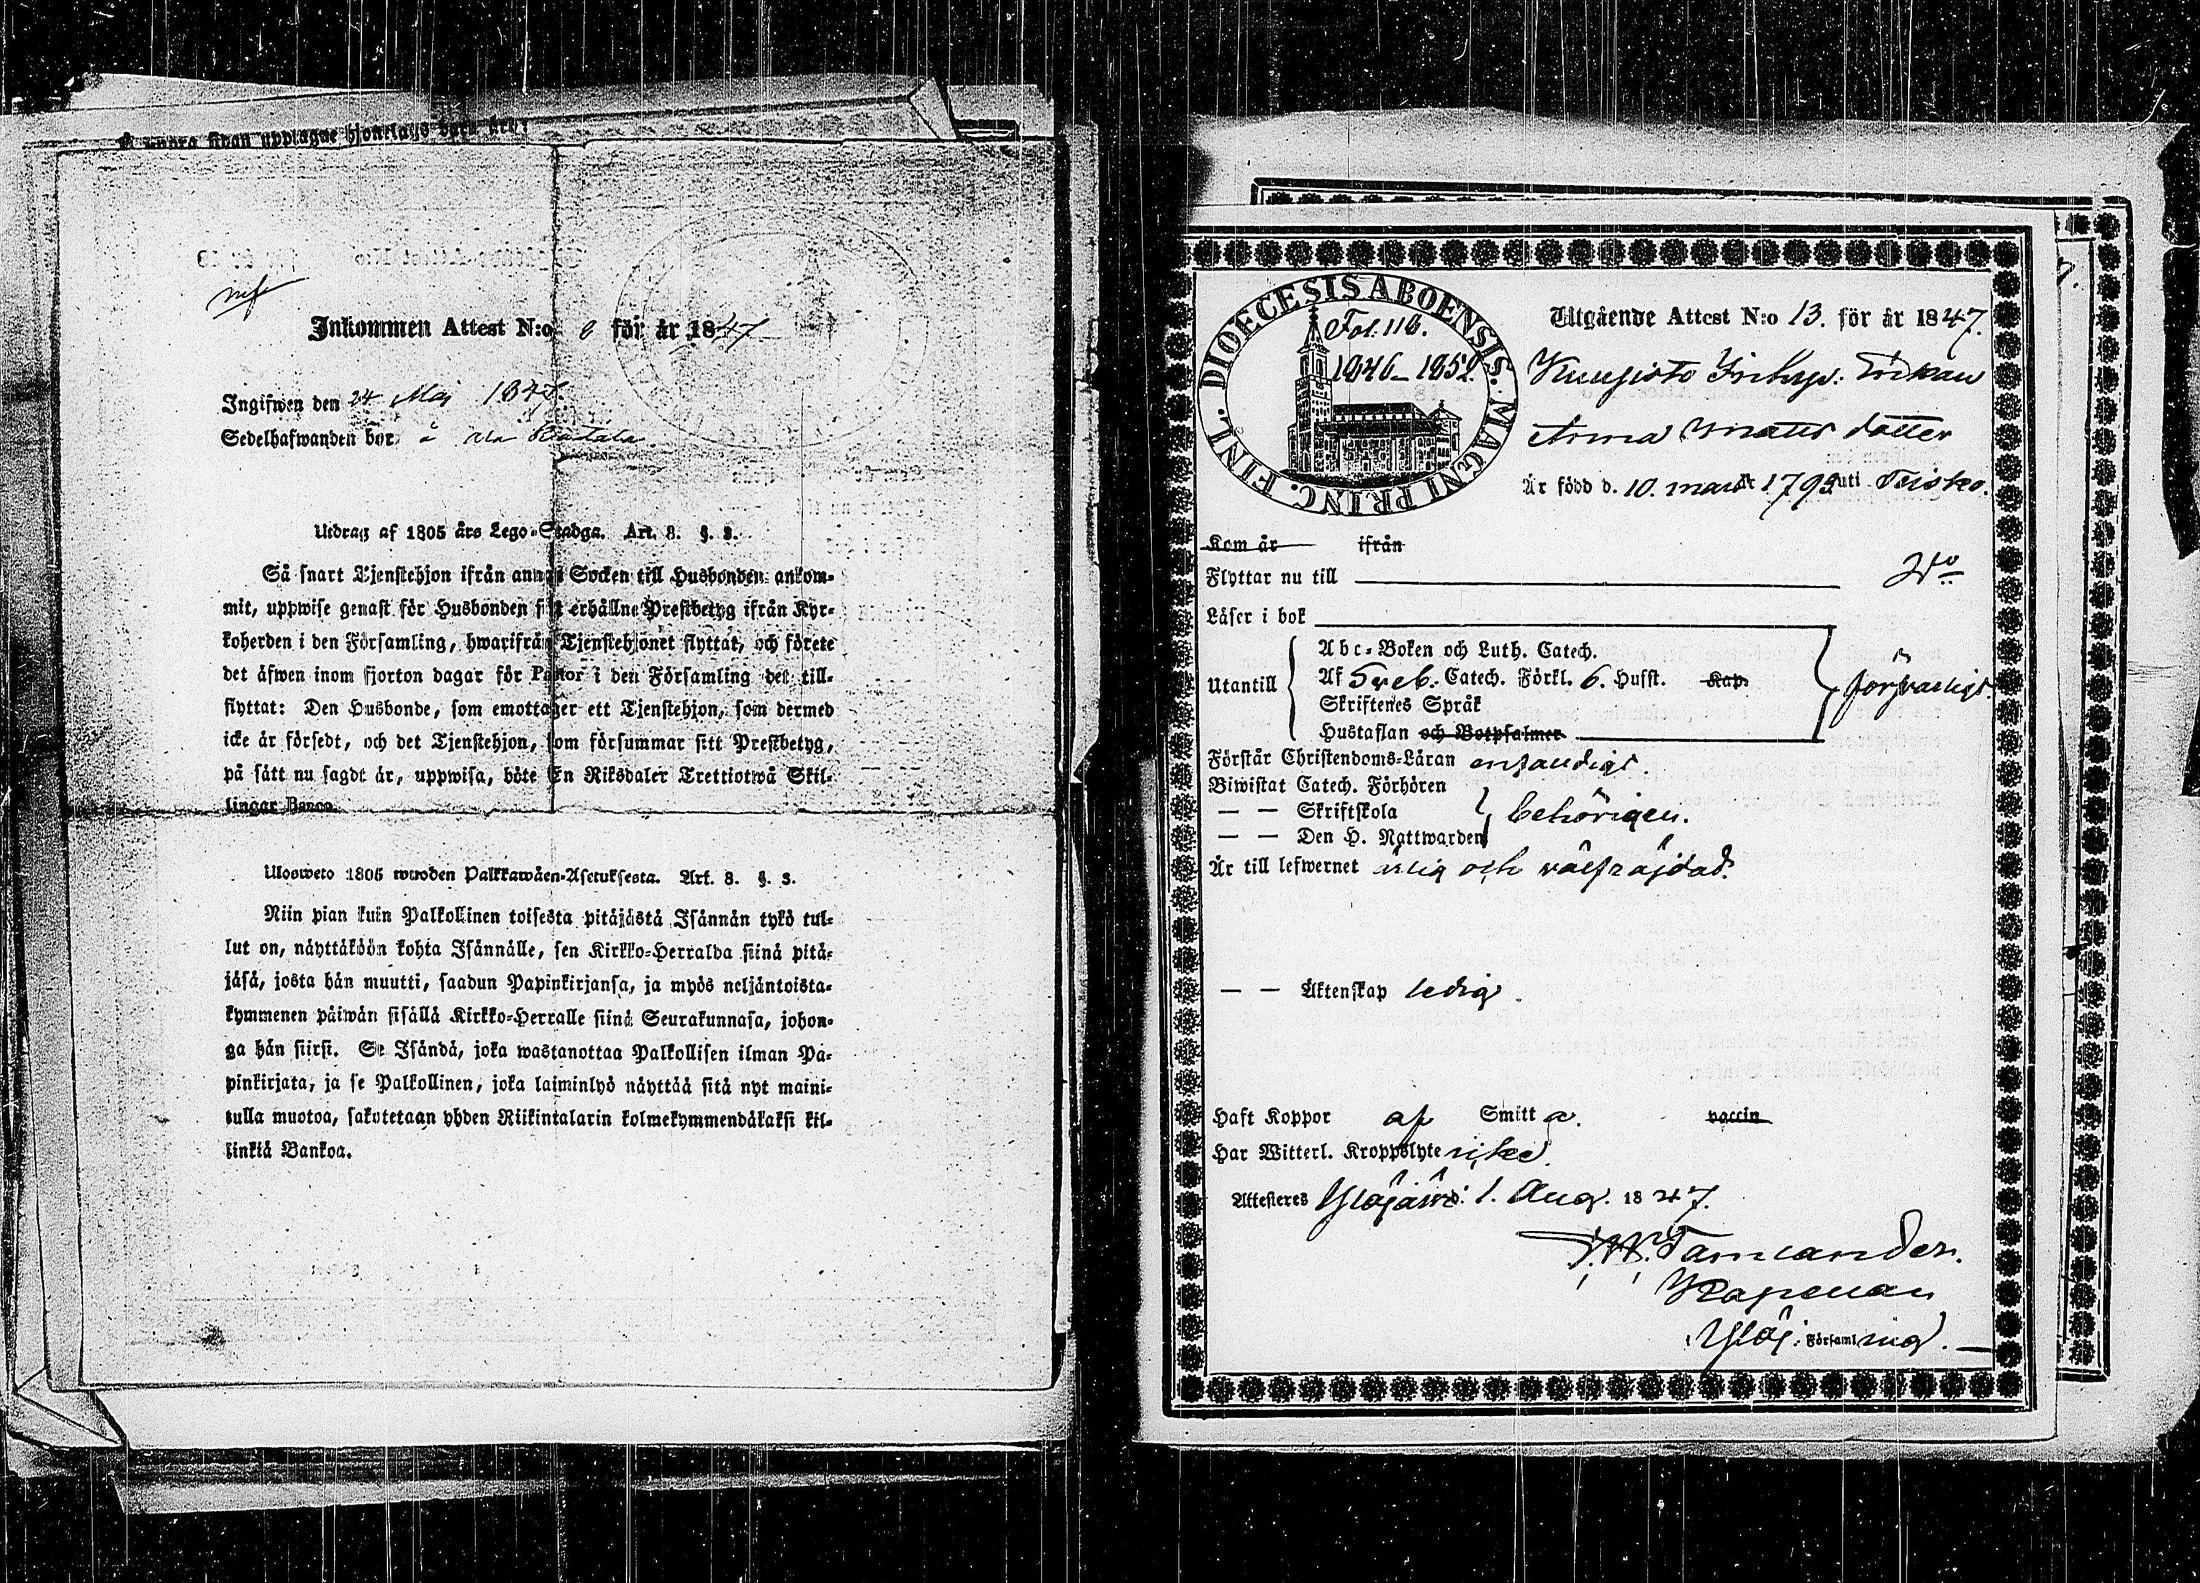 Å andra sidan upptagne hjonelags barn äro:
Inkommen Attest N:o 6 för år 1847
Ingifwen den 24 Maj 1847.
Sedelhafwanden bor å
Utdrag af 1805 års Lego-Stadga. Art. 8. §. 3.
Så snart Tjenstehjon ifrån annan Socken till Husbonden ankom-
mit, uppwise genast för Husbonden sitt erhållne Prestbetyg ifrån Kyr-
koherden i den Församling, hwarifrån Tjenstehjonet flyttat, och förete
det äfwen inom fjorton dagar för Pastor i den Församling det till-
flyttat: Den Husbonde, som emottager ett Tjenstehjon, som dermed
icke är försedt, och det Tjenstehjon, som försummar sitt Prestbetyg,
på sätt nu sagdt är, uppwisa, böte En Riksdaler Trettiotwå Skil-
lingar Banco.
Ulosweto 1805 wuoden Palkkawäen-Asetuksesta. Art. 8. §. 3.
Niin pian kuin Palkollinen toisesta pitäjästä Isännän tykö tul-
lut on, näyttäköön kohta Isännälle, sen Kirkko-Herralda siinä pitä-
jäsä, josta hän muutti, saadun Papinkirjansa, ja myös neljäntoista-
kymmenen päiwän sisällä Kirkko-Herralle siinä Seurakunnasa, johon-
ga hän siirsi. Se Isändä, joka wastanottaa Palkollisen ilman Pa-
pinkirjata, ja se Palkollinen, joka laiminlyö näyttää sitä nyt maini-
tulla muotoa, sakotetaan yhden Riikintalarin kolmekymmendäkaksi kil-
linkiä Bankoa.
DIOECESIS ABOENSIS. MAGNI PRINC. FINL.
Fol. 116.
1846-1852.
Utgående Attest N:o 13. för år 1847.
Anna Matts dotter
Är född d. 10. 179 uti Teisko.
Kom år ifrån
Flyttar nu till
Läser i bok
Utantill
Abc-Boken och Luth. Catech.
Af Sveb. Catech. Förkl. 6. Hufst. Kap.
Skriftenes Språk
Hustaflan och Botpsalmer
försvarligt.
Förstår Christendoms-Läran enfaldigt.
Biwistat Catech. Förhören
— — Skriftskola
— — Den H. Nattwarden
behörigen.
Är till lefwernet ärlig och välfräjdad.
— — Äktenskap ledig.
Haft Koppor af Smitt a. vaccin
Har Witterl. Kroppslyte icke.
Attesteres Ylöjärvi d. 1. Aug. 1847.
Kapellan
Ylöj. Församling.